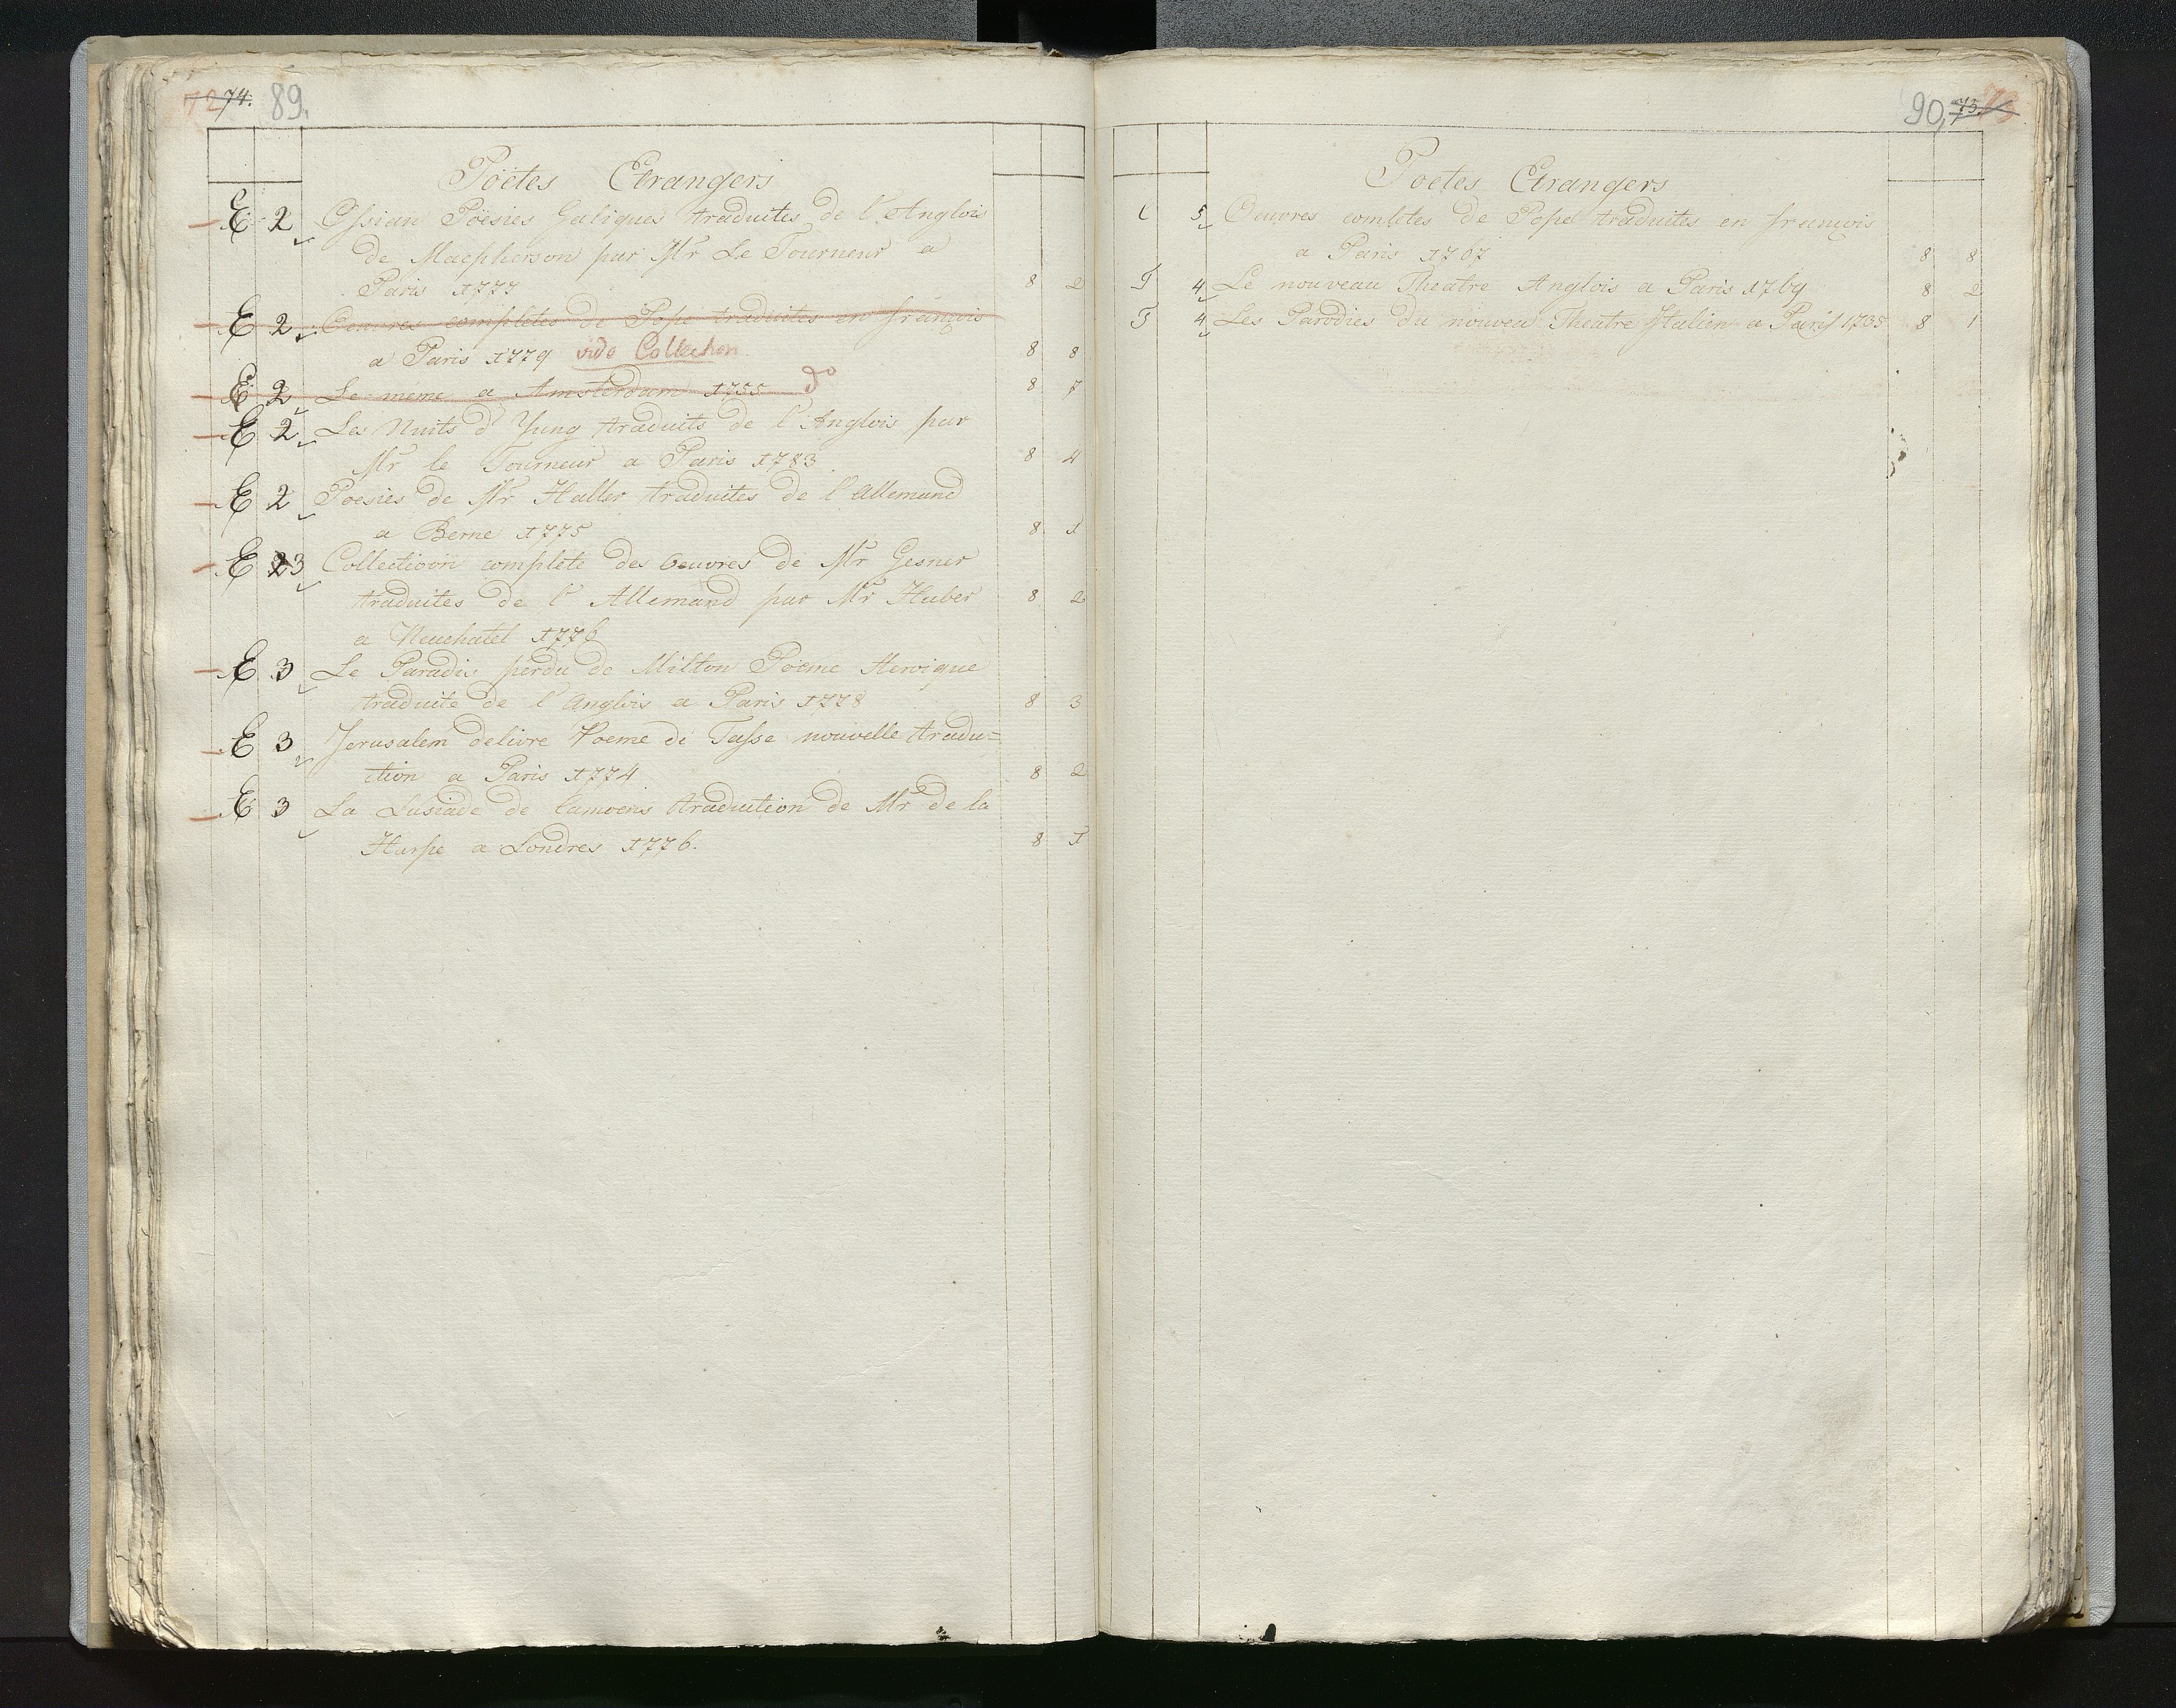 72 74. 89.
Poëtes Etrangers
E 2 Ossian Poësies Galiques traduites de l'Anglois
de Macpherson par Mr Le Tourneur a
Paris 1777 8 2
E 2 Oeuvres completes de Pope traduites en françois
a Paris 1779 vide Collection 8 8
E 2 Le même a Amsterdam 1755 do 8 7
E 2 Les Nuits d'Yung traduits de l'Anglois par
Mr le Tourneur a Paris 1783 8 4
E 2 Poesies de Mr Haller traduites de l'Allemand
a Berne 1775 8 1
E 3 Collectioon complete des Oeuvres de Mr Gesner
traduites de l'Allemand par Mr Huber 8 2
a Neuchatel 1776
E 3 Le Paradis perdu de Milton Poëme Heroique
traduite de l'Anglois a Paris 1778 8 3
E 3 Jerusalem delivre Poeme di Tasse nouvelle tradu=
ction a Paris 1774 8 2
E 3 La Lusiade de Camoens traduction de Mr de la
Harpe a Londres 1776. 8 1
90, 73. 73
Poetes Etrangers
5 Oeuvres completes de Pope traduites en françois
a Paris 1767 8 8
T 4 Le nouveau Theatre Anglois a Paris 1769 8 2
T 4 Les Parodies du nouveau Theatre Italien a Paris 1735 8 1